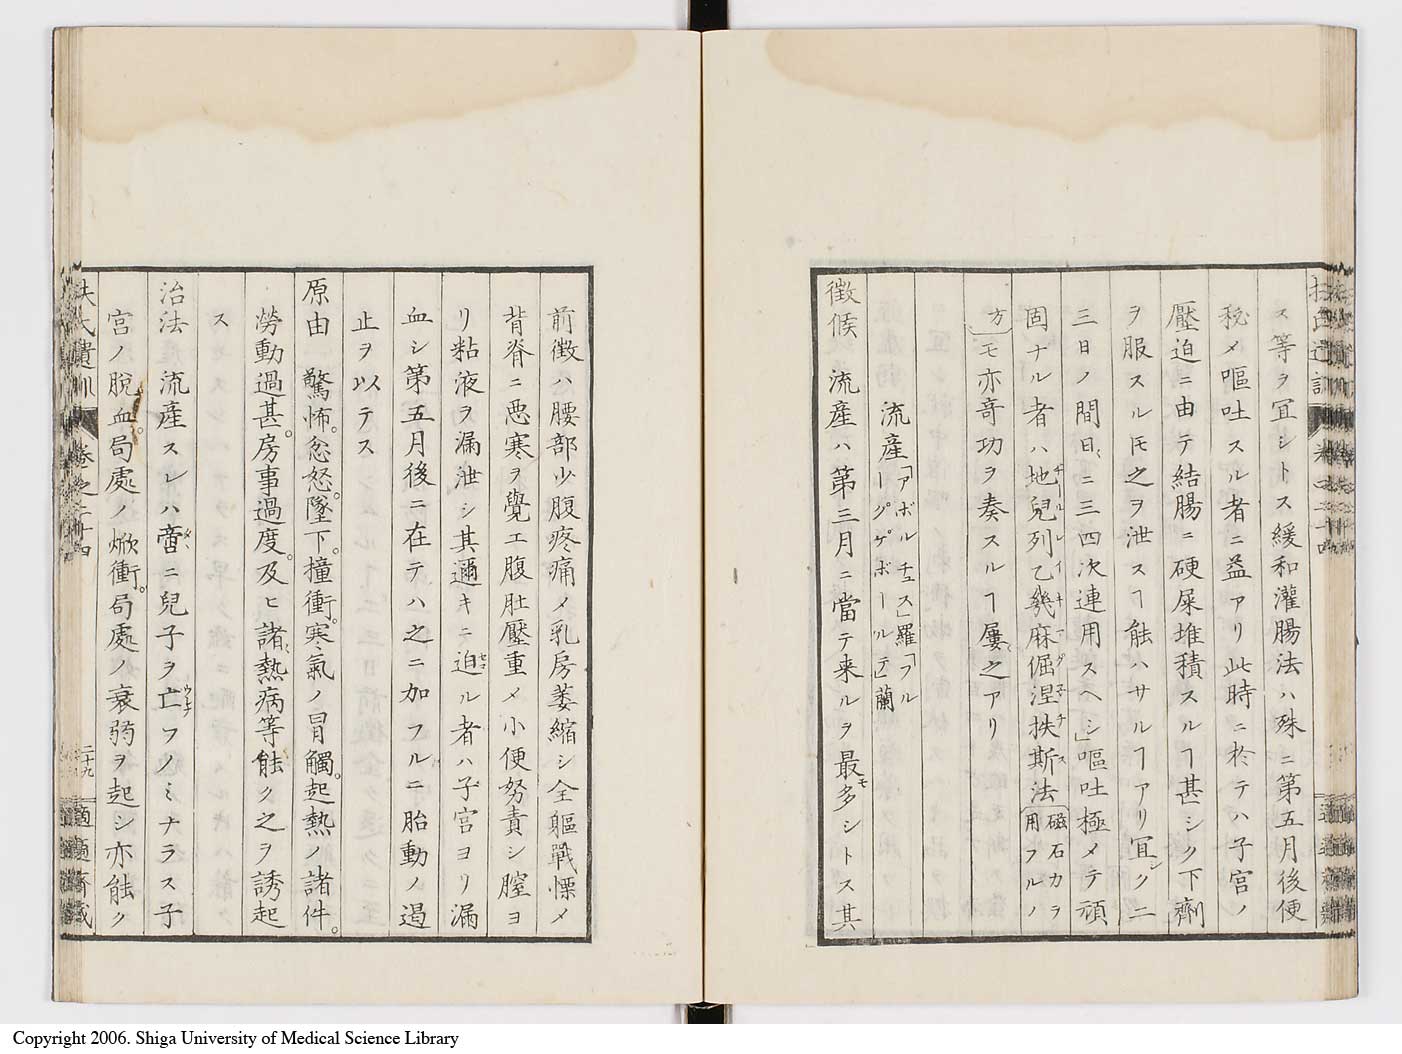 ス等ヲ冝シトス緩和灌腸法ハ殊ニ第五月後便
秘メ嘔吐スル者ニ益アリ此時ニ於テハ子宮ノ
壓迫ニ由テ結腸ニ硬屎堆積スルヿ甚シク下劑
ヲ服スルモ之ヲ泄スヿ能ハサルヿアリ冝シク二
三日ノ間日ニ三四次連用スヘシ」嘔吐極メテ頑
固ナル者ハ地兒列乙幾麻倔涅扶斯法
チールレイキマグ子チス
磁石カラ
用フルノ
方
モ亦竒功ヲ奏スルヿ屢之アリ
流産
「アボルチュス」羅「フル
ーグゲボールテ」蘭
徴候 流産ハ第三月ニ當テ来ルヲ最モ多シトス其
前徴ハ腰部少腹疼痛メ乳房萎縮シ全軀戰慄メ
背脊ニ悪寒ヲ覺エ腹肚壓重メ小便努責シ膣ヨ
リ粘液ヲ漏泄シ其逼キニ迫ル者ハ子宮ヨリ漏
血シ第五月後ニ在テハ之ニ加フルニ胎動ノ遏
止ヲ以テス
原由 驚怖。忿怒。墜下。撞衝。寒氣ノ冒觸。起熱ノ諸件。
勞動過甚。房事過度。及ヒ諸熱病等能ク之ヲ誘起
ス
治法 流産スレハ啻ニ兒子ヲ亡フノミナラス子
宮ノ脱血。局處ノ焮衝。局處ノ衰弱ヲ起シ亦能ク
扶氏遺訓
卷之二十四
二十九
適適齋藏